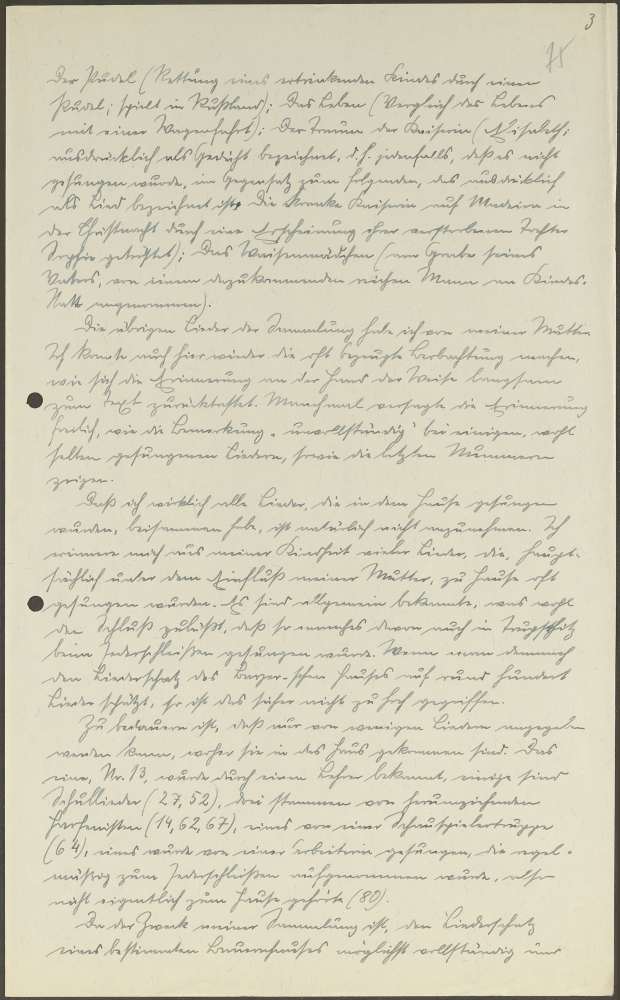 3
75
Der Pudel (Rettung eines ertrinkenden Kindes durch einen
Pudel; spielt in Rußland); Das Leben (Vergleich des Lebens
mit einer Wagenfahrt); Der Traum der Kaiserin (Elisabeth;
ausdrücklich als Gedicht bezeichnet, d.h. jedenfalls, daß es nicht
gesungen wurde, im Gegensatz zum folgenden, das ausdrücklich
als Lied bezeichnet ist. Die kranke Kaiserin auf Madeira in
der Christnacht durch eine Erscheinung ihrer verstorbenen Tochter
Sophie getröstet); Das Waisenmädchen (am Grabe seines
Vaters, von einem dazukommenden reichen Mann an Kindes-
Statt angenommen).
Die übrigen Lieder der Sammlung habe ich von meiner Mutter.
Ich konnte auch hier wieder die oft bezeugte Beobachtung machen,
wie sich die Erinnerung an der Hand der Weise langsam
zum Text zurücktastet. Manchmal versagte die Erinnerung
freilich, wie die Bemerkung „unvollständig" bei einigen, wohl
selten gesungenen Liedern, sowie die letzten Nummern
zeigen.
Daß ich wirklich alle Lieder, die in dem Hause gesungen
wurden, beisammen habe, ist natürlich nicht anzunehmen. Ich
erinnere mich aus meiner Kindheit vieler Lieder, die, haupt-
sächlich unter dem Einfluß meiner Mutter, zu Hause oft
gesungen wurden. Es sind allgemein bekannte, was wohl
den Schluß zuläßt, daß so manches davon auch in
beim Federschleißen gesungen wurde. Wenn man demnach
den Liederschatz des schen Hauses auf rund hundert
Lieder schätzt, so ist das sicher nicht zu hoch gegriffen.
Zu bedauern ist, daß nur von wenigen Liedern angegeben
werden kann, woher sie in das Haus gekommen sind. Das
eine, Nr. 13, wurde durch einen Lehrer bekannt, einige sind
Schullieder (27, 52), drei stammen von herumziehenden
Harfenisten (14, 62, 67), eines von einer Schauspielertruppe
(64), eines wurde von einer Arbeiterin gesungen, die regel-
mäßig zum Federschleißen aufgenommen wurde, also
nicht eigentlich zum Hause gehörte (80).
Da der Zweck meiner Sammlung ist, den Liederschatz
eines bestimmten Bauernhauses möglichst vollständig und